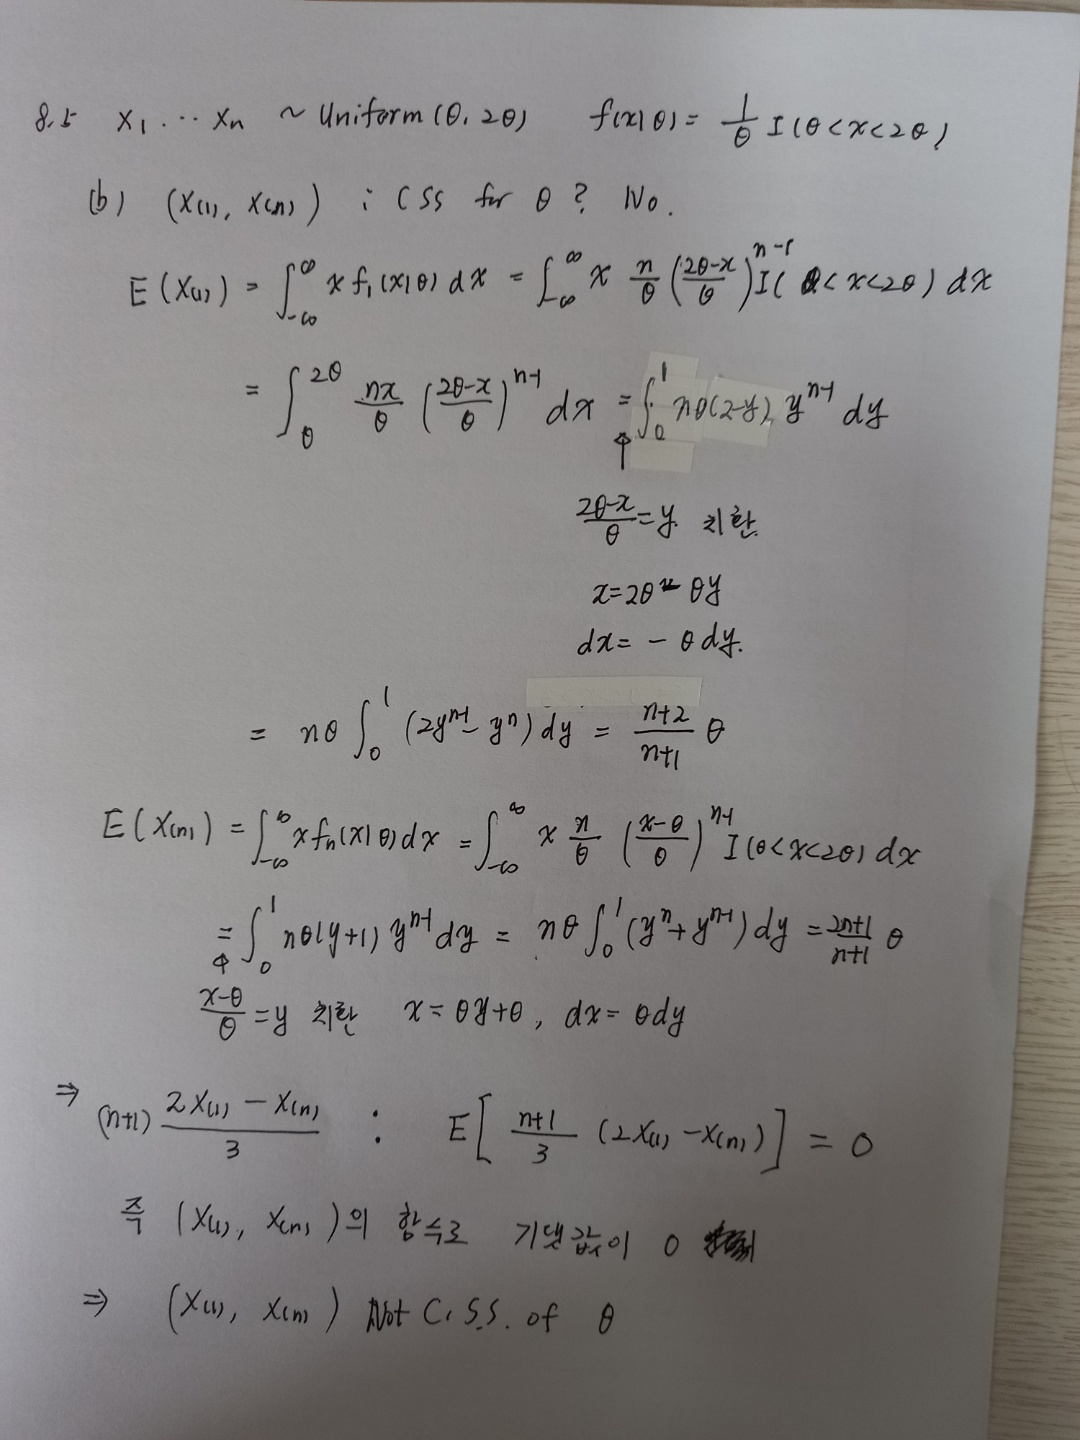 8.5 X₁ ··· Xn ~ Uniform (θ, 2θ) f(x|θ) = 1/θ I(θ<x<2θ)
(b) (X(1), X(n)) : CSS for θ? No.
E(X(1)) = ∫_{-∞}^{∞} x f₁(x|θ) dx = ∫_{-∞}^{∞} x n/θ ((2θ-x)/θ)^{n-1} I(θ<x<2θ) dx
= ∫_θ^{2θ} nx/θ ((2θ-x)/θ)^{n-1} dx = ∫_0^1 nθ(2-y) y^{n-1} dy
↑
(2θ-x)/θ = y. 치환.
x = 2θ - θy
dx = - θ dy.
= nθ ∫_0^1 (2y^{n-1} - y^n) dy = (n+2)/(n+1) θ
E(X(n)) = ∫_{-∞}^{∞} x fn(x|θ) dx = ∫_{-∞}^{∞} x n/θ ((x-θ)/θ)^{n-1} I(θ<x<2θ) dx
= ∫_0^1 nθ(y+1) y^{n-1} dy = nθ ∫_0^1 (y^n + y^{n-1}) dy = (2n+1)/(n+1) θ
↑
(x-θ)/θ = y 치환 x = θy+θ, dx = θdy
⇒ (n+1) (2X(1) - X(n))/3 : E[ (n+1)/3 (2X(1) - X(n)) ] = 0
즉 (X(1), X(n))의 함수로 기댓값이 0
⇒ (X(1), X(n)) Not C.S.S. of θ